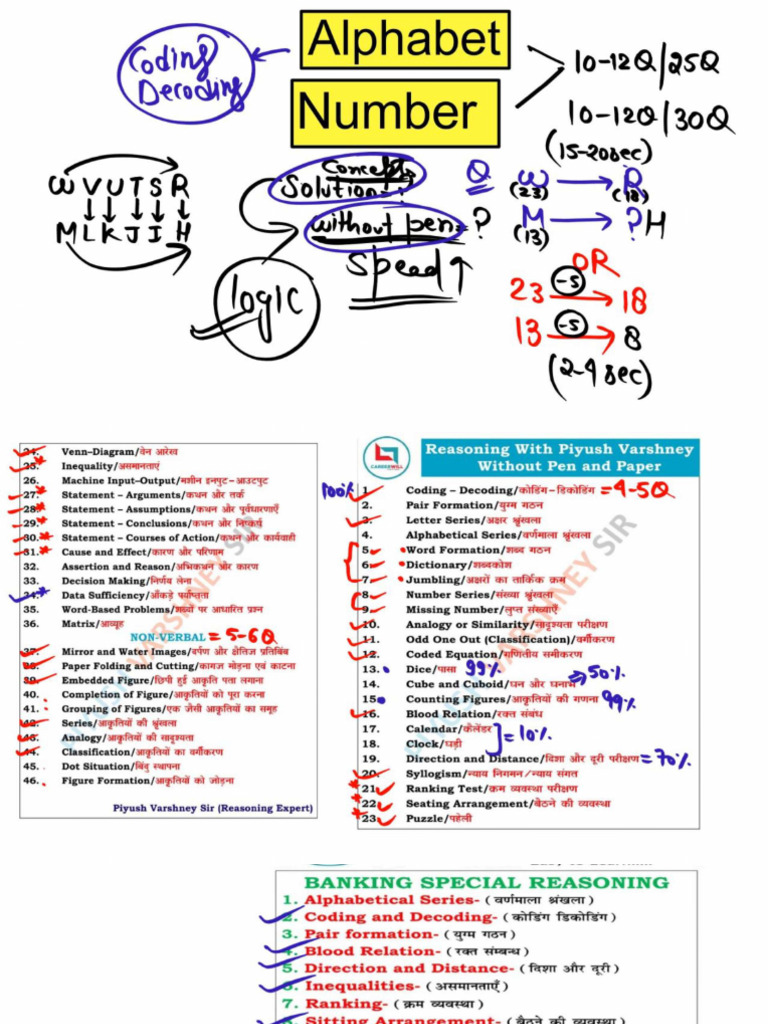 Alphabet
Number
Coding
Decoding
10-12Q/25Q
10-12Q/30Q
(15-20sec)
W V U T S R
M L K J I H
Concept
Solution-?
without pen=?
Speed↑
logic
Q W → R
(23) (18)
M → ? H
(13)
OR
23 -5 → 18
13 -5 → 8
(2-4 sec)
24. Venn-Diagram/वेन आरेख
25. Inequality/असमानताएं
26. Machine Input-Output/मशीन इनपुट-आउटपुट
27. Statement – Arguments/कथन और तर्क
28. Statement – Assumptions/कथन और पूर्वधारणाएँ
29. Statement – Conclusions/कथन और निष्कर्ष
30. Statement – Courses of Action/कथन और कार्यवाही
31. Cause and Effect/कारण और परिणाम
32. Assertion and Reason/अभिकथन और कारण
33. Decision Making/निर्णय लेना
34. Data Sufficiency/आँकड़े पर्याप्तता
35. Word-Based Problems/शब्दों पर आधारित प्रश्न
36. Matrix/आव्यूह
NON-VERBAL = 5-6Q
37. Mirror and Water Images/दर्पण और क्षैतिज प्रतिबिंब
38. Paper Folding and Cutting/कागज मोड़ना एवं काटना
39. Embedded Figure/छिपी हुई आकृति पता लगाना
40. Completion of Figure/आकृतियों को पूरा करना
41. Grouping of Figures/एक जैसी आकृतियों का समूह
42. Series/आकृतियों की श्रृंखला
43. Analogy/आकृतियों की सादृश्यता
44. Classification/आकृतियों का वर्गीकरण
45. Dot Situation/बिंदु स्थापना
46. Figure Formation/आकृतियों को जोड़ना
Piyush Varshney Sir (Reasoning Expert)
PIYUSH VARSHNEY SIR
CAREERWILL
Reasoning With Piyush Varshney
Without Pen and Paper
100% 1. Coding – Decoding/कोडिंग – डिकोडिंग = 4-5Q
2. Pair Formation/युग्म गठन
3. Letter Series/अक्षर श्रृंखला
4. Alphabetical Series/वर्णमाला श्रृंखला
5. Word Formation/शब्द गठन
6. Dictionary/शब्दकोश
7. Jumbling/अक्षरों का तार्किक क्रम
8. Number Series/संख्या श्रृंखला
9. Missing Number/लुप्त संख्याएँ
10. Analogy or Similarity/सादृश्यता परीक्षण
11. Odd One Out (Classification)/वर्गीकरण
12. Coded Equation/गणितीय समीकरण
13. Dice/पासा 99%
14. Cube and Cuboid/घन और घनाभ ⇒ 50%
15. Counting Figures/आकृतियों की गणना 99%
16. Blood Relation/रक्त संबंध
17. Calendar/कैलेंडर
18. Clock/घड़ी = 10%
19. Direction and Distance/दिशा और दूरी परीक्षण = 70%
20. Syllogism/न्याय निगमन/न्याय संगत
21. Ranking Test/क्रम व्यवस्था परीक्षण
22. Seating Arrangement/बैठने की व्यवस्था
23. Puzzle/पहेली
VARSHNEY SIR
BANKING SPECIAL REASONING
1. Alphabetical Series- ( वर्णमाला श्रंखला )
2. Coding and Decoding- ( कोडिंग डिकोडिंग )
3. Pair formation- ( युग्म गठन )
4. Blood Relation- ( रक्त सम्बन्ध )
5. Direction and Distance- ( दिशा और दूरी )
6. Inequalities- ( असमानताएँ )
7. Ranking- ( क्रम व्यवस्था )
8. Sitting Arrangement- ( बैठने की व्यवस्था )